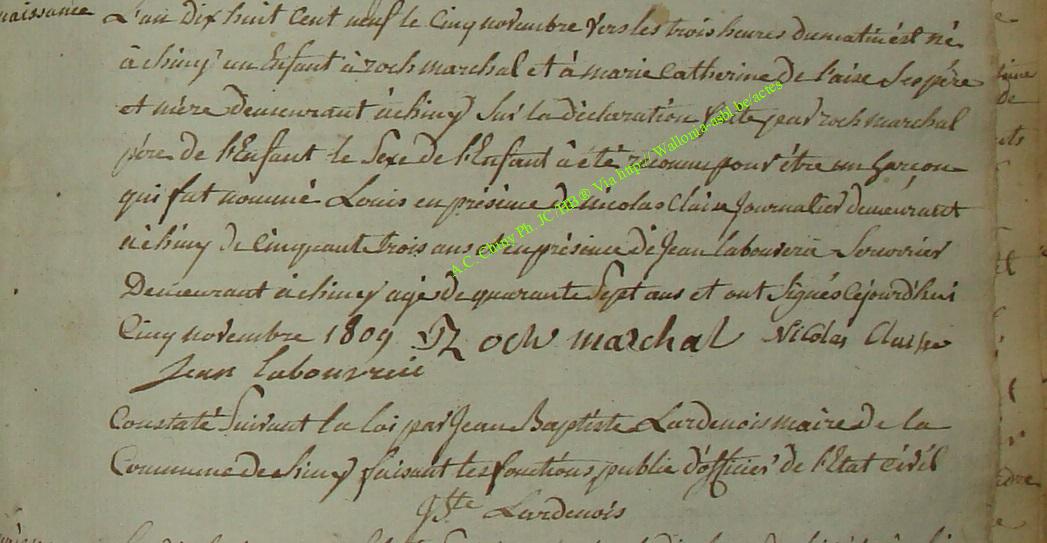 naissance
L'an dix huit cent neuf le cinq novembre vers les trois heures du matin est né
à chiny un Enfant à roch marchal et à marie Catherine de laise Ses père
et mère demeurant à chiny Sur la déclaration faite par roch marchal
père de l'Enfant le Sexe de l'Enfant à été reconnu pour être un garcon
qui fut nommé Louis en présence de Nicolas Claise Journalier demeurant
à chiny de Cinquant trois ans et en présence de Jean labouverie
Demeurant à chiny agé de quarante Sept ans et ont Signés Cejourd'hui
Cinq novembre 1809 Roch marchal Nicolas Claise
Jean labouvrie
Constaté Suivant la loi par Jean Baptiste Lardenois maire de la
Commune de chiny faisant les fonctions public d'officier de l'Etat civil
Lardenois
A.C. Chiny Ph. JC/HB® Via http://Wallonia-asbl.be/actes